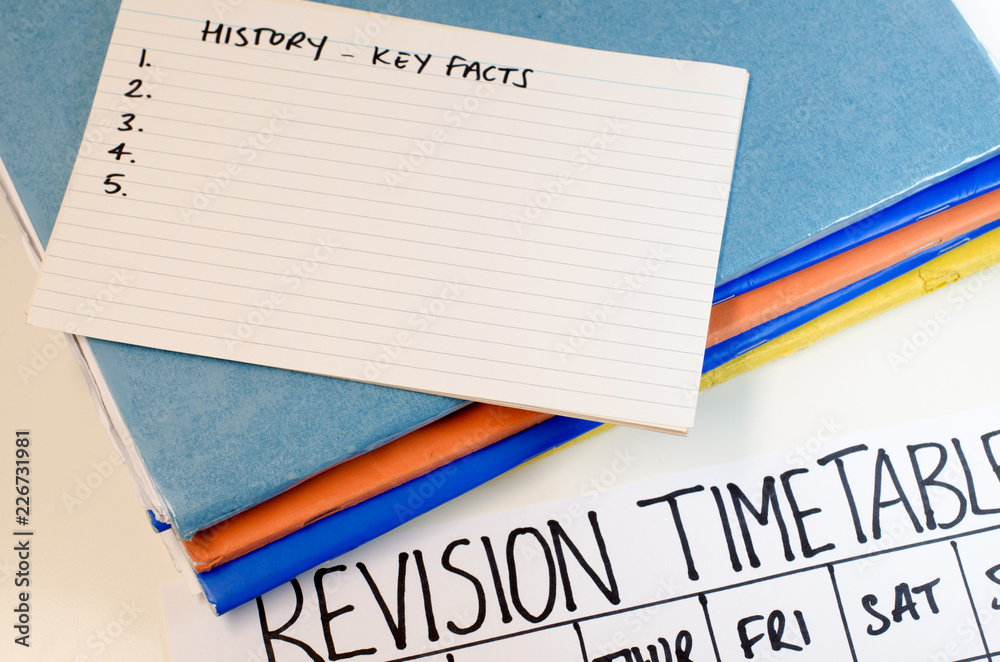 HISTORY - KEY FACTS
1.
2.
3.
4.
5.
REVISION TIMETABLE
THUR FRI SAT
Adobe Stock | #226731981